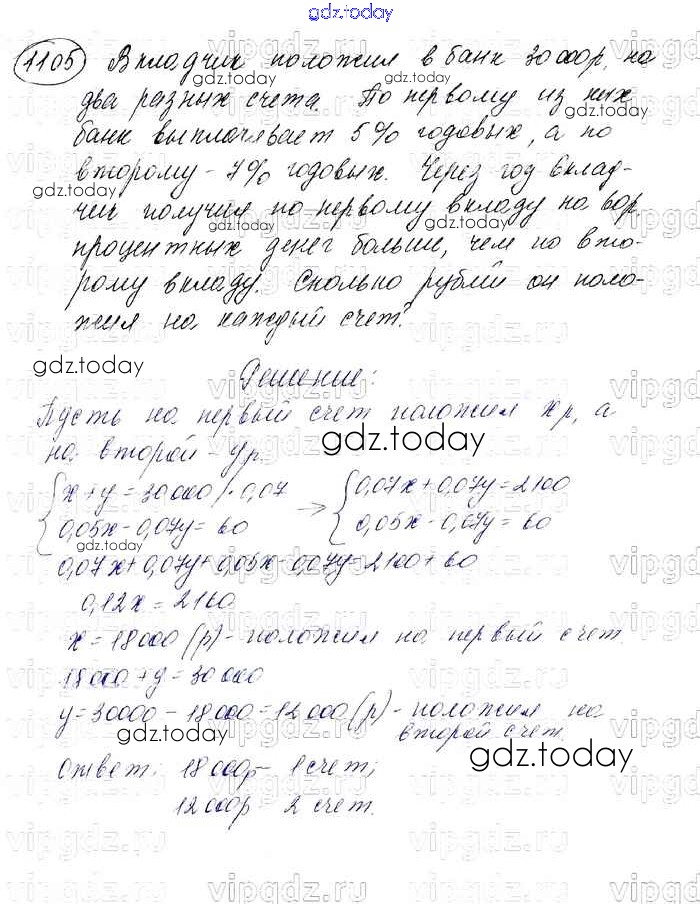 gdz.today
1105 Вкладчик положил в банк 30 000р. на
два разных счета. По первому из них
банк выплачивает 5% годовых, а по
второму - 7% годовых. Через год вклад-
чик получил по первому вкладу на 60р.
процентных денег больше, чем по вто-
рому вкладу. Сколько рублей он поло-
жил на каждый счет?
gdz.today
Решение:
Пусть на первый счет положил х р, а
на второй - у р.
gdz.today
{x + y = 30 000 | · 0,07 → {0,07x + 0,07y = 2100
0,05x - 0,07y = 60 0,05x - 0,07y = 60
0,07x + 0,07y + 0,05x - 0,07y = 2100 + 60
0,12x = 2160
x = 18 000 (р) - положил на первый счет.
18 000 + y = 30 000
y = 30000 - 18 000 = 12 000 (р) - положил на
второй счет.
gdz.today
Ответ: 18 000р - 1 счет;
12 000р 2 счет.
vipgdz.ru